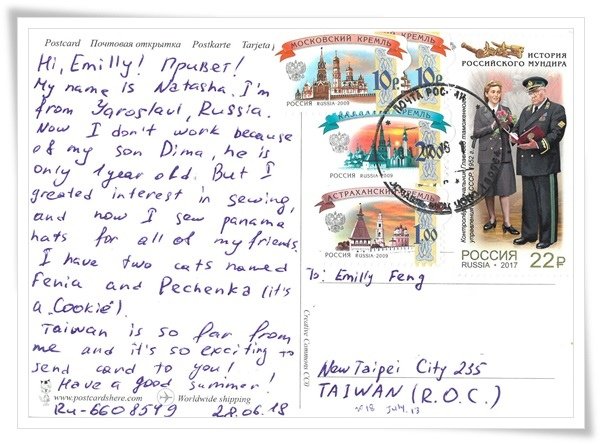 Postcard Почтовая открытка Postkarte Tarjeta
Hi, Emilly! Привет!
My name is Natasha. I'm
from Yaroslavl, Russia.
Now I don't work because
of my son Dima, he is
only 1 year old. But I
greated interest in sewing,
and now I sew panama
hats for all of my friends.
I have two cats named
Fenia and Pechenka (it's
a "Cookie").
Taiwan is so far from
me and it's so exciting to
send card to you!
Have a good summer!
www.postcardshere.com Worldwide shipping
Ru-6608549 28.06.18
Creative Commons CC0
МОСКОВСКИЙ КРЕМЛЬ
10р 10р
РОССИЯ RUSSIA·2009
КРЕМЛЬ
РОССИЯ RUSSIA·2009
АСТРАХАНСКИЙ КРЕМЛЬ
1.00
РОССИЯ RUSSIA·2009
ПОЧТА РОС
ИСТОРИЯ
РОССИЙСКОГО МУНДИРА
РОССИЯ
RUSSIA · 2017 22₽
To: Emilly Feng
New Taipei City 235
TAIWAN (R.O.C.)
July.13